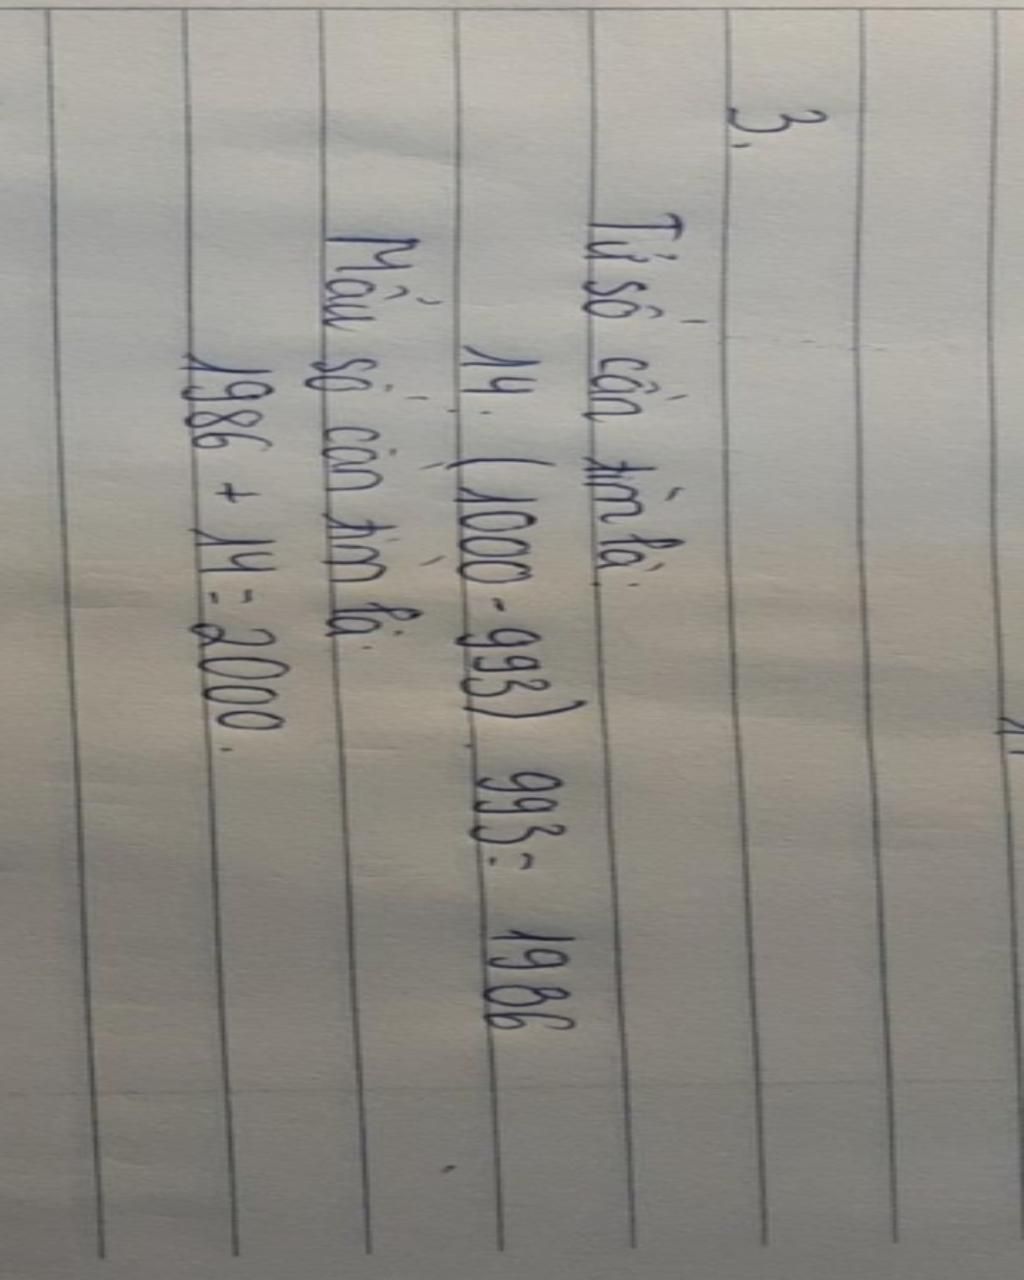 3.
Tử số cần tìm là:
14 : (1000 - 993) . 993 = 1986
Mẫu số cần tìm là:
1986 + 14 = 2000.